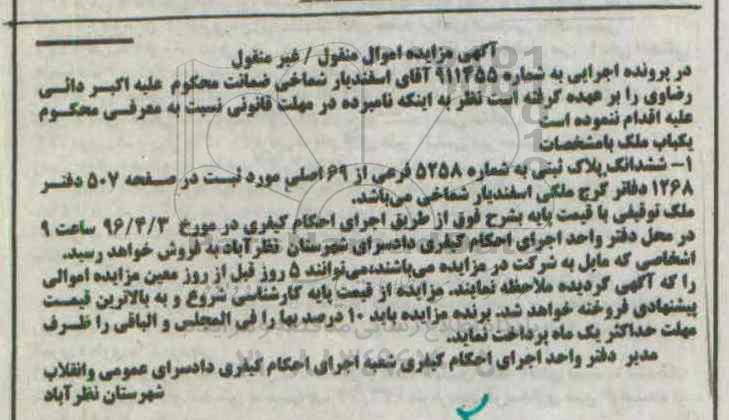 آگهی مزایده اموال منقول / غیر منقول
در پرونده اجرایی به شماره ۹۱۱۴۵۵ آقای اسفندیار شماخی ضمانت محکوم علیه اکبر دائی
رضاوی را بر عهده گرفته است نظر به اینکه نامبرده در مهلت قانونی نسبت به معرفی محکوم
علیه اقدام ننموده است
یکباب ملک بامشخصات:
۱- ششدانگ پلاک ثبتی به شماره ۵۲۵۸ فرعی از ۶۹ اصلی مورد ثبت در صفحه ۵۰۷ دفتر
۱۲۶۸ دفاتر کرج ملکی اسفندیار شماخی می‌باشد.
ملک توقیفی با قیمت پایه بشرح فوق از طریق اجرای احکام کیفری در مورخ ۹۶/۴/۳ ساعت ۹
در محل دفتر واحد اجرای احکام کیفری دادسرای شهرستان نظرآباد به فروش خواهد رسید.
اشخاصی که مایل به شرکت در مزایده می‌باشند،می‌توانند ۵ روز قبل از روز معین مزایده اموالی
را که آگهی گردیده ملاحظه نمایند. مزایده از قیمت پایه کارشناسی شروع و به بالاترین قیمت
پیشنهادی فروخته خواهد شد. برنده مزایده باید ۱۰ درصد بها را فی المجلس و الباقی را ظرف
مهلت حداکثر یک ماه پرداخت نماید.
مدیر دفتر واحد اجرای احکام کیفری شعبه اجرای احکام کیفری دادسرای عمومی وانقلاب
شهرستان نظرآباد